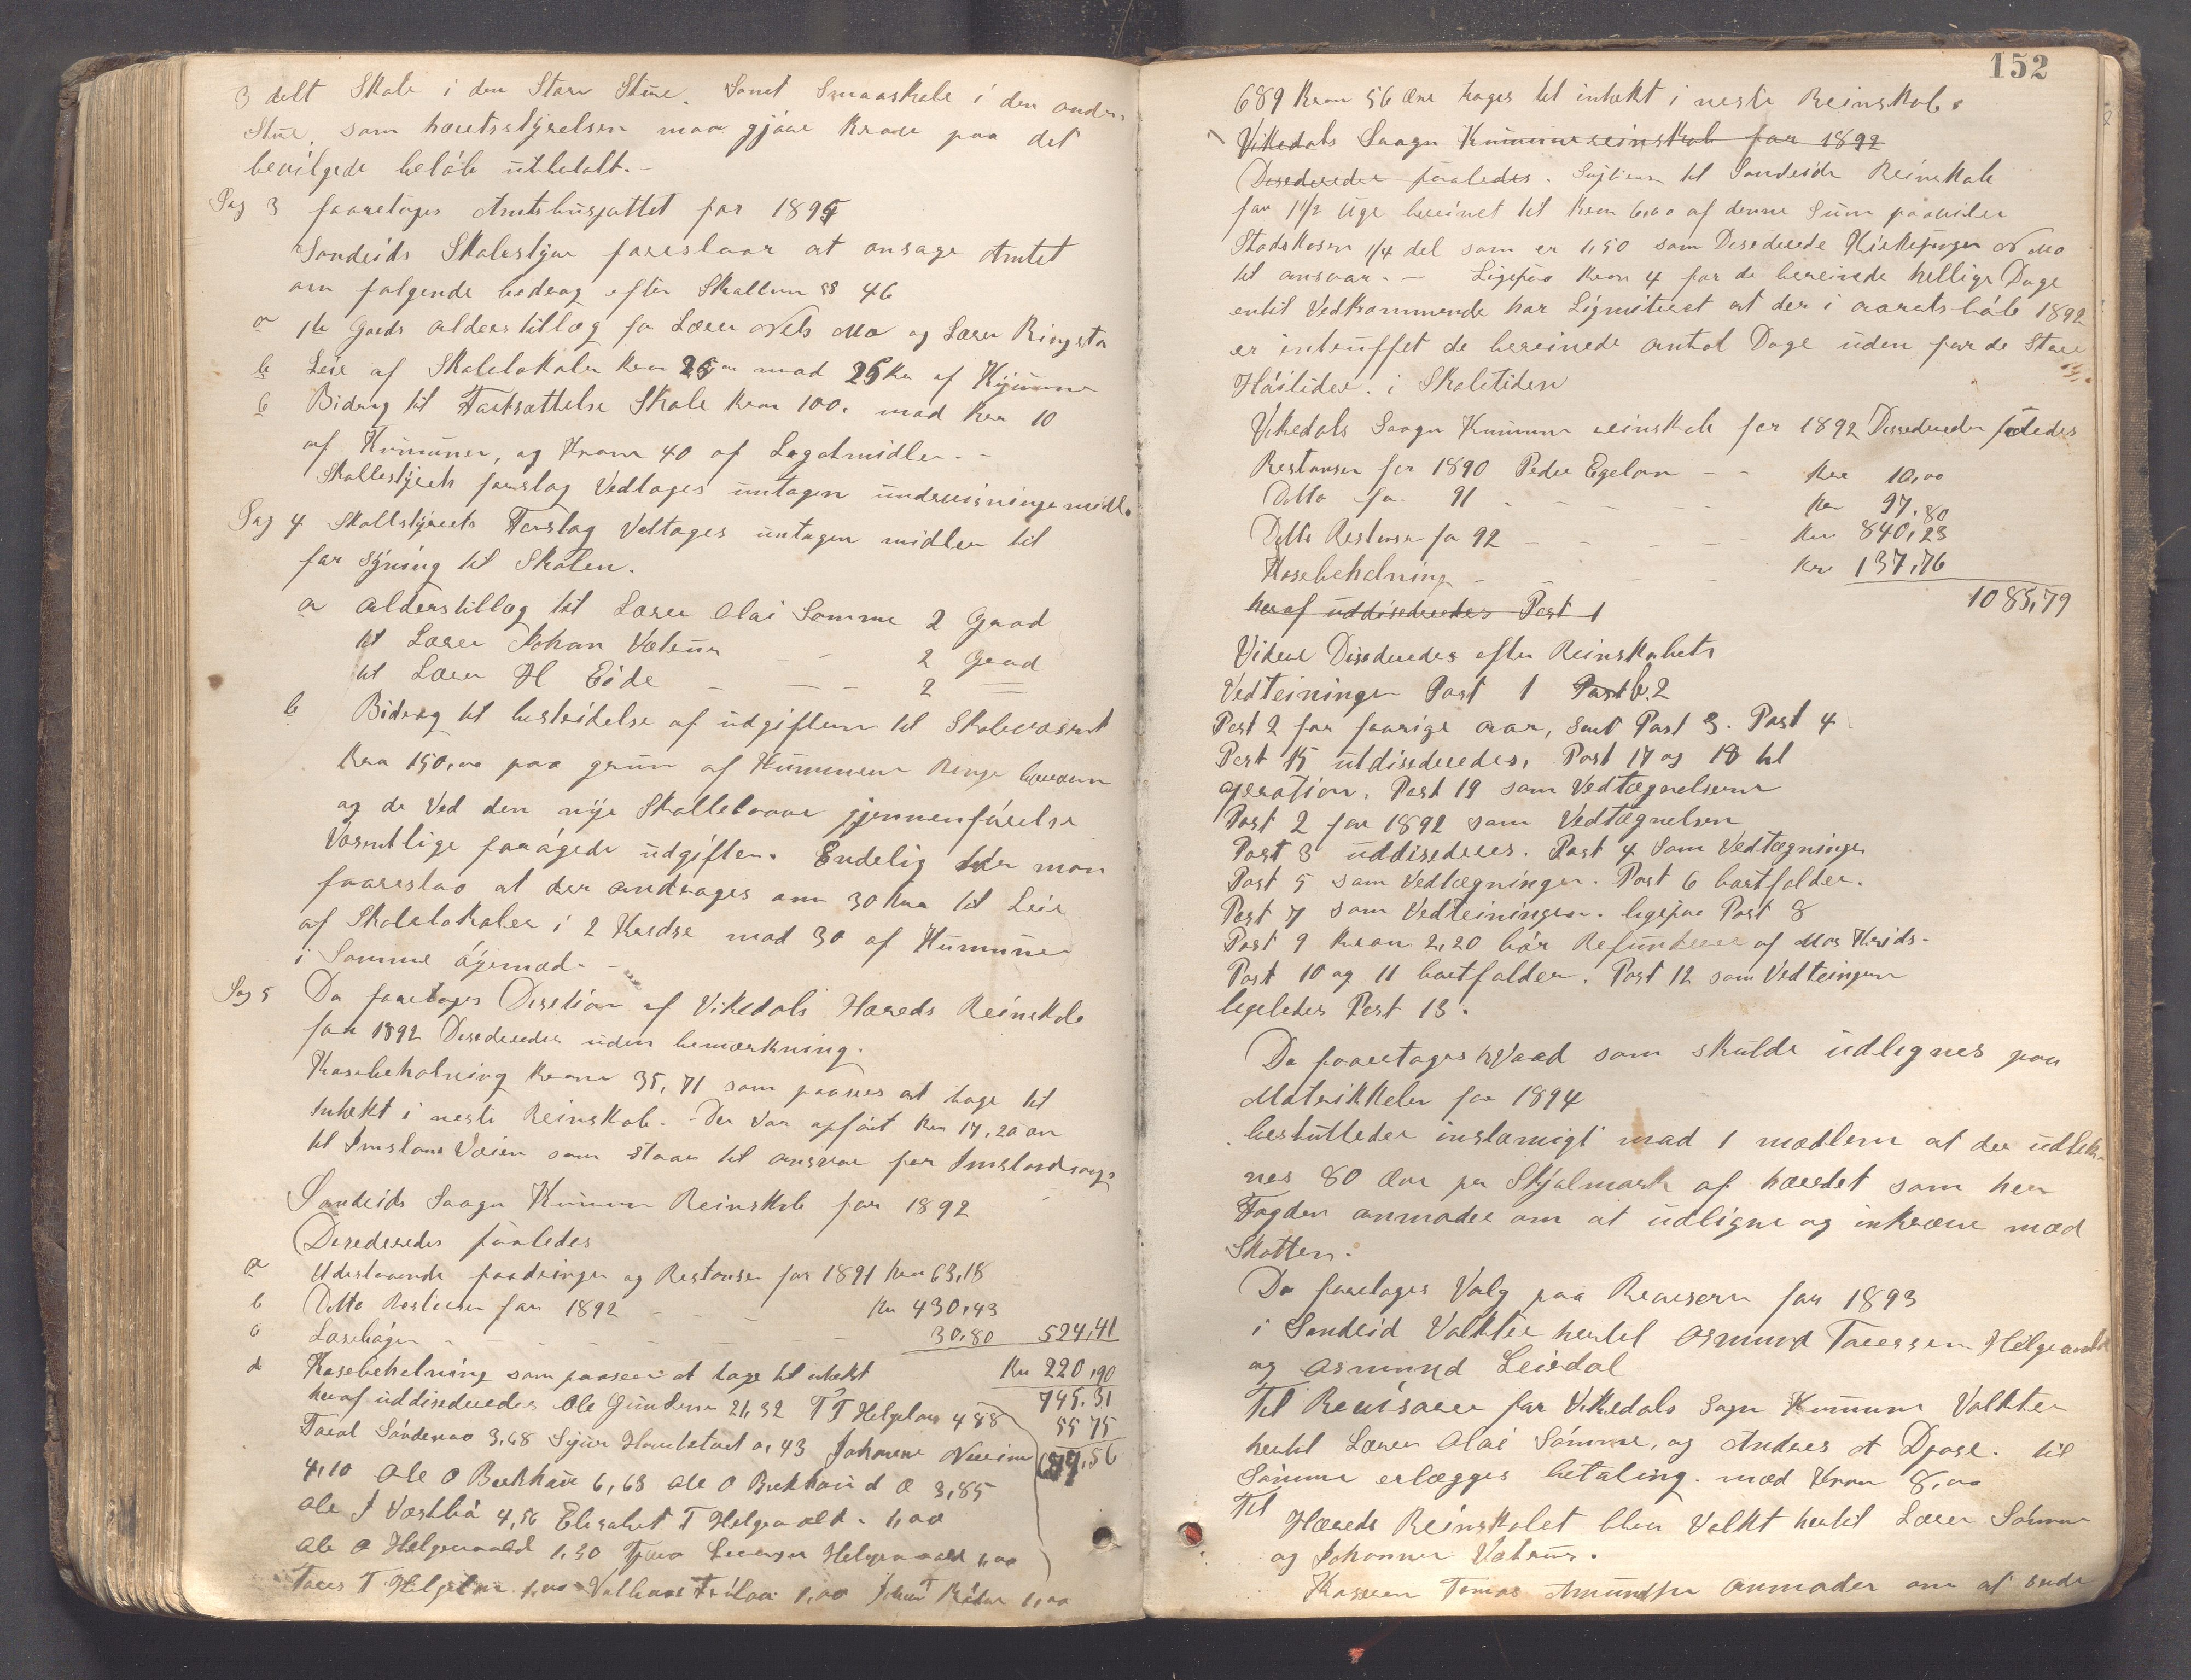 3 delt Skole i den Store Stue. Samt Smaaskole i den anden
Stue, som herretsstyrelsen maa gjøre Krave paa det
bevilgede beløb utbetalt.-
Sag 3 foaretages Amtsbusjattet for 1894
Sandeids Skolestyre foreslaar at ansøge Amtet
om følgende bedrag efter Skolloven §§ 46
a 1te Grads alderstillæg for Lærer Nels Mo og Lærer Ringstø
b Leie af Skolelokaler Kron 25,00 mod 25 Kr af Kommune
c Bidrag til Fortsættelse Skole Kron 100. mod Kr 10
af Kommunen, og Krone 40 af Legatmidler.-
Skollestyrets forslag Vedtages untagen undervisningsmidl.
Sag 4 Skollstyrets Forslag Vettages untagen midler til
for syning til Skolen.
a Alderstillæg til Lærer Olai Sømme 2 Grad
til Lærer Johan Vatne - - 2 Grad
til Lærer H Eide - - - 2 =
b Bidrag til bestridelse af udgiften til Skolevæsnet
Kro 150,00 paa grun af Kommunens
og de Ved den nye Skollelovs gjennemførelse
Væsentlige forøgede udgifter. Endelig man
foareslao at der andrages om 30 Kro til Leie
af Skolelokaler i 2 Kredse mod 30 af Kummune
i Samme øyemed.-
Sag 5 Da foaretages Desition af Vikedals Hereds Reinskab
for 1892 Desederedes uden bemærkning.
Kasebeholning Krone 35,71 som paasees at tage til
Intekt i neste Reinskab.- Der Var opført Kro 17,20 øre
til Imsland Veien som staar til ansvar for Imslandsogn
Sandeids Saagn Kommune Reinskab for 1892
Desederedes saaledes
a Udestaaende foadringer og Restanser for 1891 Kro 63,18
b Ditto Restanser for 1892 - - - Kr 430,43
c Læsebøger - - - - - 30,80 524,41
d Kasebeholning som paasees at tage til intekt Kr 220,90
heraf uddisederedes Ole Gundersen 21,32 T T Helgeland 4 88 745,31
Toral Søndenaa 3,68 Sjur 0,43 Johannes 55 75
4,10 Ole O Bækhaug 6,63 Ole O Bækhaug d o 3,85 689,56
Ole J Vestbø 4,56 Elisabet T Helgevold. 1,00
Ole O Helgevold 1,30 Helgevold 1,00
Tores T Helgeland 1,00 1,00 1,00
152
689 Kron 56 Øre tages til intekt i neste Reinskab.
Vikedals Saagn Kummunereinskab for 1892
Desederedes foaledes. til Sandeids Reinskab
for 1 1/2 Uge bereinet til Kron 6,00 af denne Sum
1/4 del som er 1,50 som Desederede Kirkesanger N Mo
til ansvar.- Ligesaa Kron 4 for de bereinede hellige Dage
entil Vedkommende har Ligmiteret at der i aarets løb 1892
er intruffet de bereinede antal Dage uden for de Store
Høitider. i Skoletiden
Vikedals Saagn Kummune reinskab for 1892 Desederedes saaledes
Restanser for 1890 Peder Egelan - - Kro 10,00
Ditto for. 91 - - - - Kr 97,80
Ditto Restanser for 92 - - - - Kro 840,23
Kasebeholning - - - Kr 137,76
1085,79
heraf uddisederedes Post 1
Videre Disederedes efter Reinskabets
Vedteininger Post 1 Post b.2
Post 2 for foarige aar, samt Post 3. Post 4
Post 15 utdisederedes, Post 17 og 18 til
operation. Post 19 som Vedtægnelserne
Post 2 for 1892 som Vedtægnelsen
Post 3 uddisederes. Post 4 som Vedtægninge
Post 5 som Vedtægningen. Post 6 bortfalder.
Post 7 som Vedteiningen. ligesaa Post 8
Post 9 Kron 2,20 bør Refunderes af Mos Kreds.
Post 10 og 11 bortfalder. Post 12 som Vedteingen
ligeledes Post 13.
Da foaretages hvad som skulde udlignes paa
Matrikkelen for 1894
beslutteder instæmigt mod 1 medlem at der udlig-
nes 80 Øre pr Skjalmark af heredet som herr
Fogden anmodes om at udligne og inkræve med
Skatten.
Da foaretages Valg paa Revisorer for 1893
i Sandeid Valktes hertil Osmund Toressen Helgevold
og Asmund Leirdal
Til Revisorer for Vikedals Sogn Kummune Valktes
hertil Lærer Olai Sømme, og Andres A Djose. til
Sømme erlægges betaling. med Kron 8,00
Til Hereds Reinskabet blev Valkt hertil Lærer Sømme
og Johannes Vatne.
Kasseren Tomas Amundsen anmodes om at ende